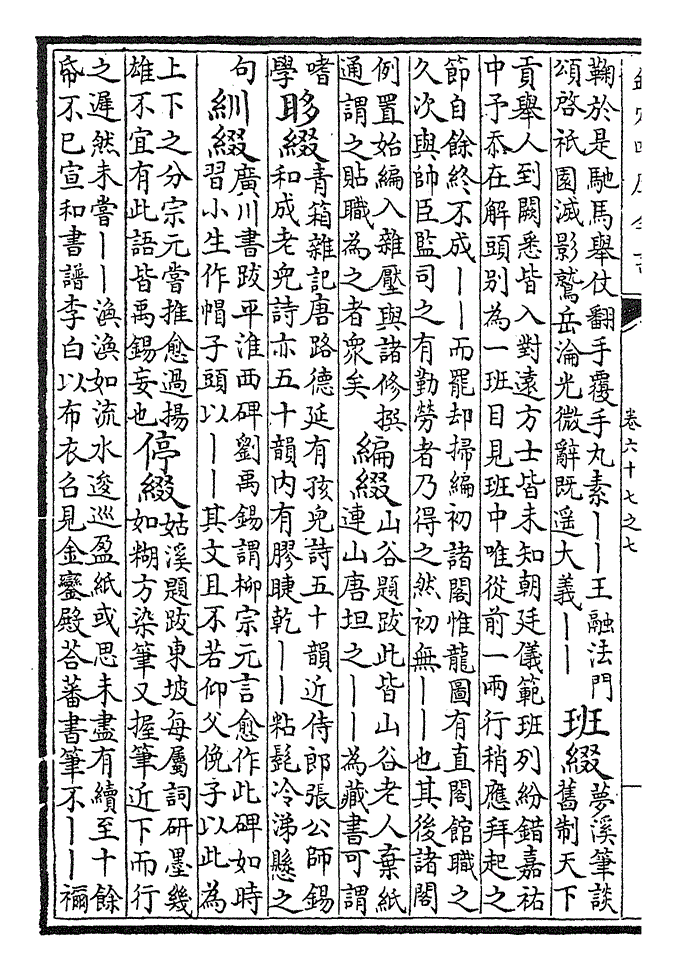 欽定四庫全書
卷六十七之七
鞠於是馳馬舉仗翻手覆手丸素丨丨王融法門
頌啓祇園滅影鷲岳淪光微辭既遥大義丨丨
班綴
夢溪筆談
舊制天下
貢舉人到闕悉皆入對遠方士皆未知朝廷儀範班列紛錯嘉祐
中予忝在解頭別為一班目見班中唯從前一兩行稍應拜起之
節自餘終不成丨丨而罷却掃編初諸閣惟龍圖有直閣館職之
久次與帥臣監司之有勤勞者乃得之然初無丨丨也其後諸閣
例置始編入雜壓與諸修撰
通謂之貼職為之者衆矣
編綴
山谷題跋此皆山谷老人棄紙
連山唐坦之丨丨為藏書可謂
嗜
學
眵綴
青箱雜記唐路德延有孩兒詩五十韻近侍郎張公師錫
和成老兒詩亦五十韻內有膠睫乾丨丨粘髭冷涕懸之
句
紃綴
廣川書跋平淮西碑劉禹錫謂柳宗元言愈作此碑如時
習小生作帽子頭以丨丨其文且不若仰父俛子以此為
上下之分宗元嘗推愈過揚
雄不宜有此語皆禹錫妄也
停綴
姑溪題跋東坡每屬詞研墨幾
如糊方染筆又握筆近下而行
之遲然未嘗丨丨渙渙如流水逡巡盈紙或思未盡有續至十餘
帋不已宣和書譜李白以布衣召見金鑾殿荅蕃書筆不丨丨禰